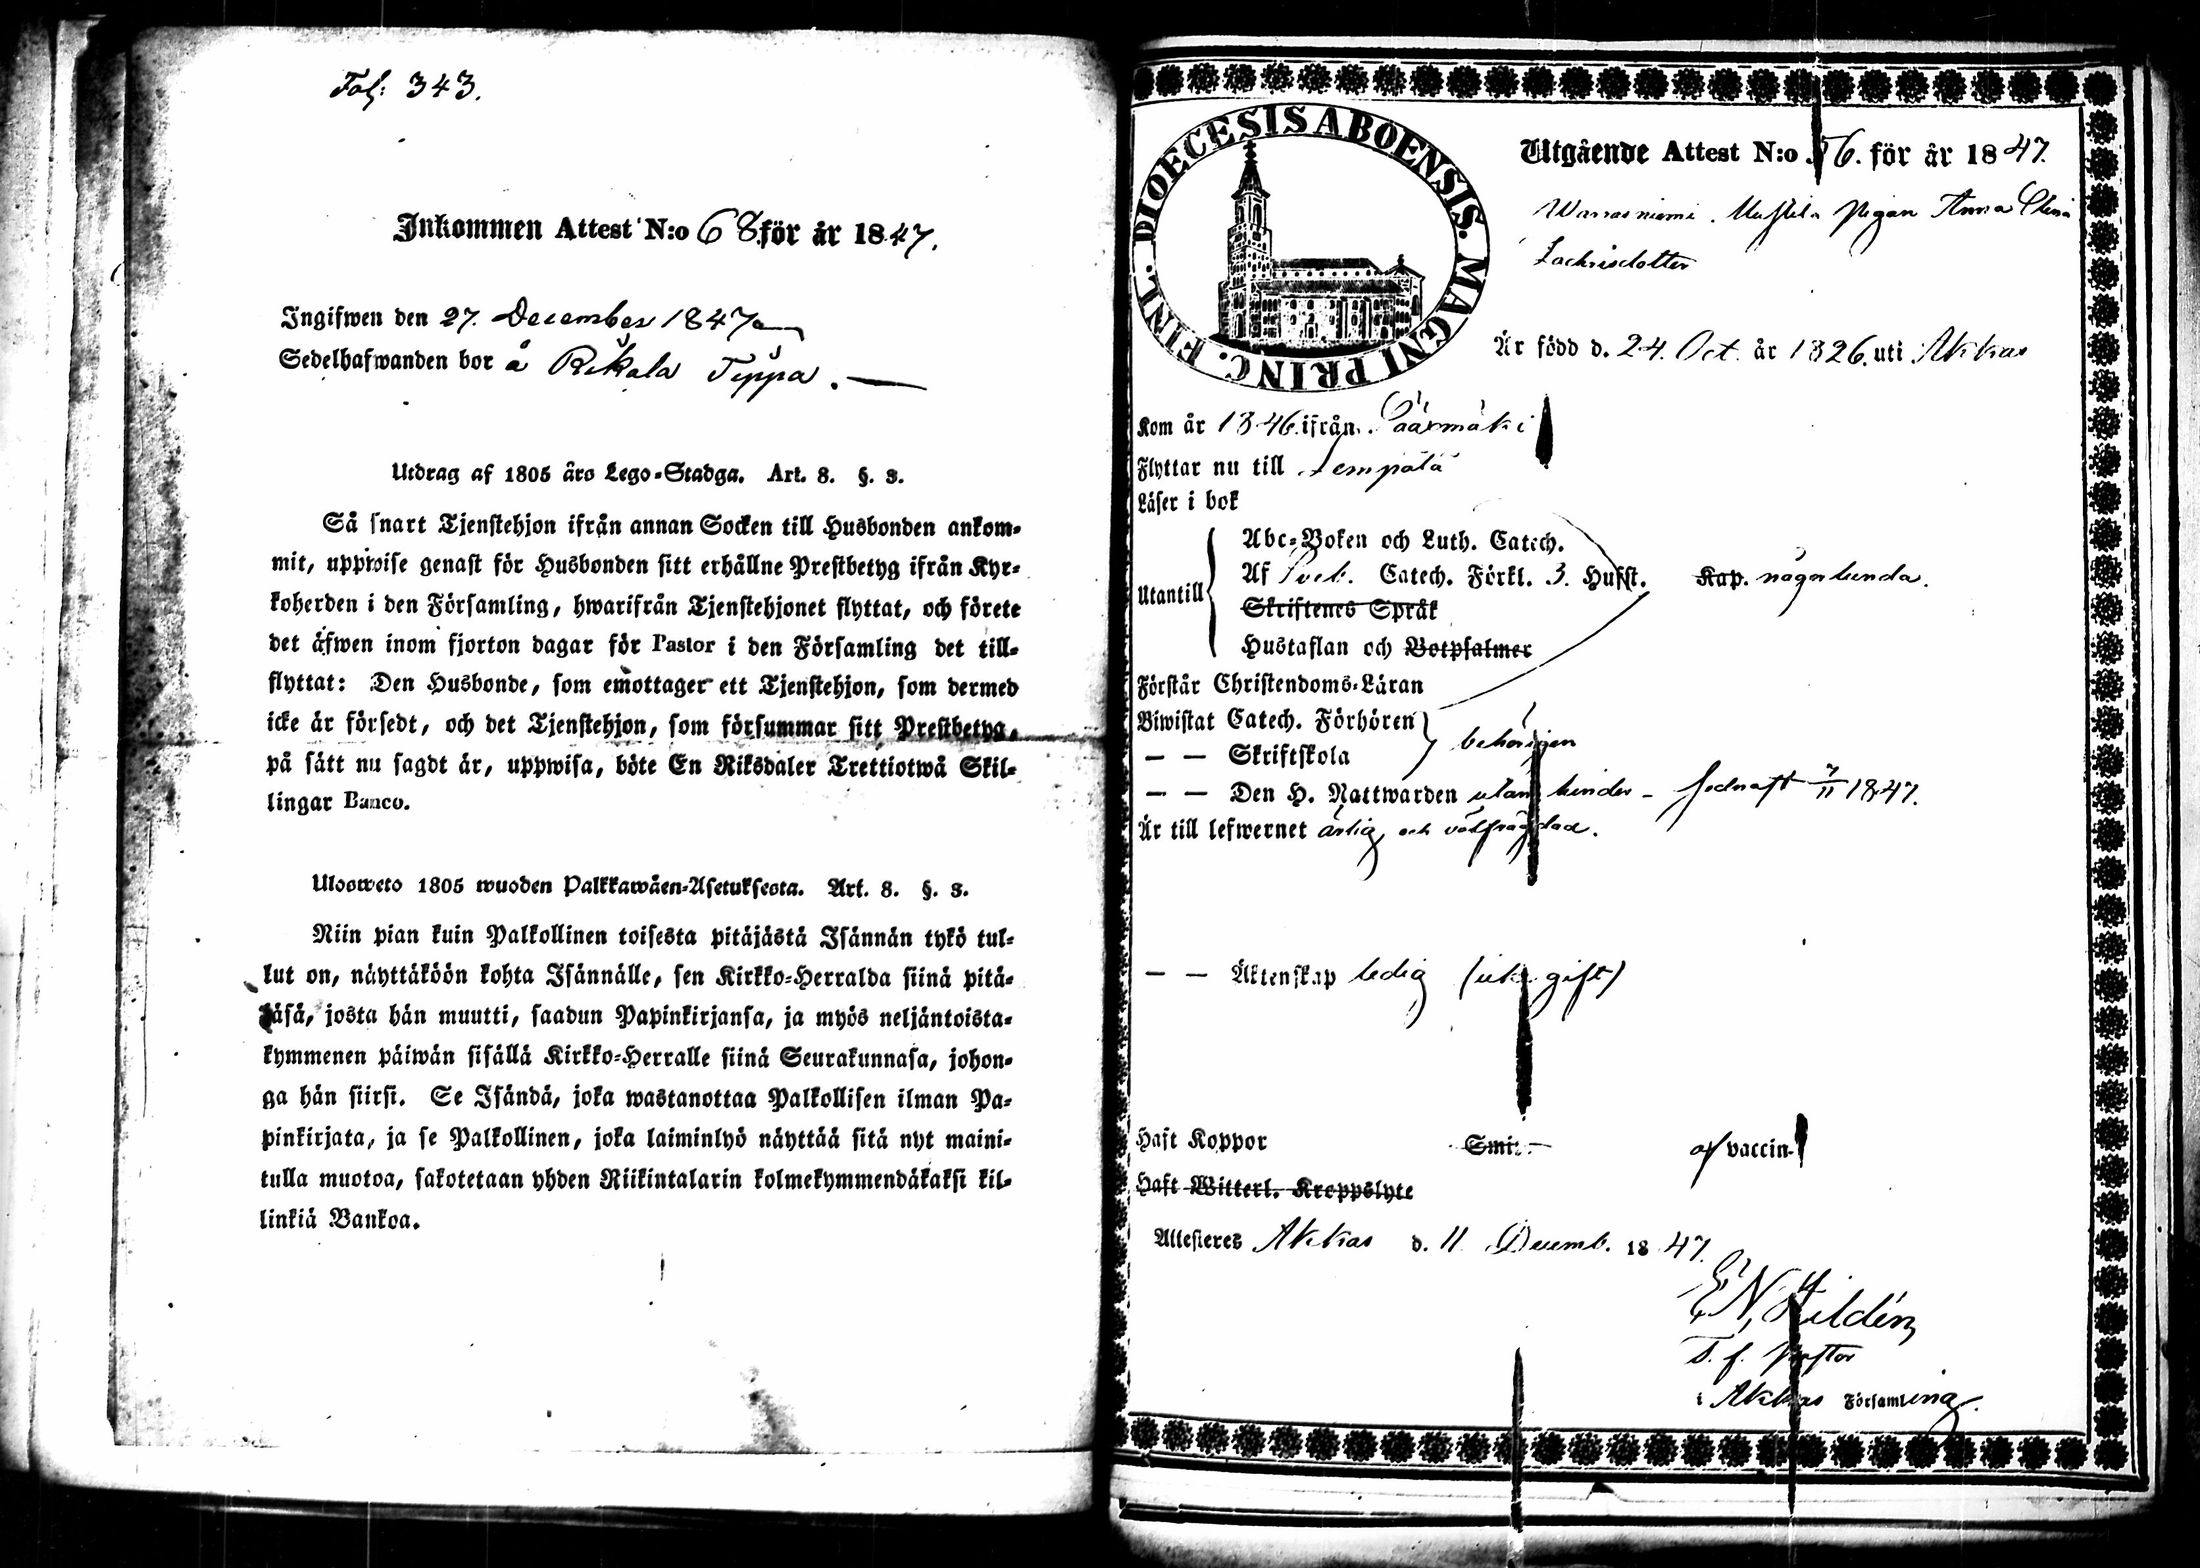 Fol: 343.
Inkommen Attest N:o 68 för år 1847.
Ingifwen den 27. December 1847
Sedelhafwanden bor å Rikala Tippa.
Utdrag af 1805 års Lego-Stadga. Art. 8. §. 3.
Så snart Tjenstehjon ifrån annan Socken till Husbonden ankom-
mit, uppwise genast för Husbonden sitt erhållne Prestbetyg ifrån Kyr-
koherden i den Församling, hwarifrån Tjenstehjonet flyttat, och förete
det äfwen inom fjorton dagar för Pastor i den Församling det till-
flyttat: Den Husbonde, som emottager ett Tjenstehjon, som dermed
icke är försedt, och det Tjenstehjon, som försummar sitt Prestbetyg,
på sätt nu sagdt är, uppwisa, böte En Riksdaler Trettiotwå Skil-
lingar Banco.
Ulosweto 1805 wuoden Palkkawäen-Asetuksesta. Art. 8. §. 3.
Niin pian kuin Palkollinen toisesta pitäjästä Isännän tykö tul-
lut on, näyttäköön kohta Isännälle, sen Kirkko-Herralda siinä pitä-
jäsä, josta hän muutti, saadun Papinkirjansa, ja myös neljäntoista-
kymmenen päiwän sisällä Kirkko-Herralle siinä Seurakunnasa, johon-
ga hän siirsi. Se Isändä, joka wastanottaa Palkollisen ilman Pa-
pinkirjata, ja se Palkollinen, joka laiminlyö näyttää sitä nyt maini-
tulla muotoa, sakotetaan yhden Riikintalarin kolmekymmendäkaksi kil-
linkiä Bankoa.
DIOECESIS ABOENSIS. MAGNI PRINC. FINL.
Utgående Attest N:o 56. för år 1847.
Warrasniemi Mustila pigan Anna Stina
Zachrisdotter
Är född d. 24. Oct. år 1826. uti Akkas
Kom år 1846. ifrån Sääxmäki
Flyttar nu till Lempälä
Läser i bok
Abc-Boken och Luth. Catech.
Utantill Af Sveb. Catech. Förkl. 3. Husst. Kap. någorlunda.
Skriftenes Språk
Hustaflan och Botpsalmer
Förstår Christendoms-Läran
Biwistat Catech. Förhören behörigen
— — Skriftskola
— — Den H. Nattwarden utan hinder – sednast 7/11 1847.
Är till lefwernet ärlig och välfrägdad.
— — Äktenskap ledig (icke gift)
Haft Koppor Smit- af vaccin
Haft Witterl. Kroppslyte
Attesteres Akkas d. 11 Decemb. 1847.
E N Hildén
T. f. Pastor
i Akkas Församling.